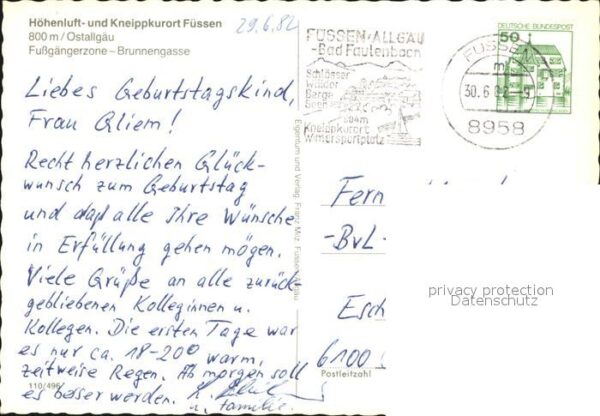 Höhenluft- und Kneippkurort Füssen
800 m / Ostallgäu
Fußgängerzone – Brunnengasse
29.6.82
Liebes Geburtstagskind,
Frau Gliem!
Recht herzlichen Glück-
wunsch zum Geburtstag
und daß alle Ihre Wünsche
in Erfüllung gehen mögen.
Viele Grüße an alle zurück-
gebliebenen Kolleginnen u.
Kollegen. Die ersten Tage war
es nur ca. 18-20° warm,
zeitweise Regen. Ab morgen soll
es besser werden. K.
u. Familie.
110/496
Eigentum und Verlag Franz Milz Füssen
FÜSSEN/ALLGÄU
-Bad Faulenbach
Schlösser
Wälder
Berge
Seen
804m
Kneippkurort
Wintersportplatz
FÜSSEN
30.6.82-9
8958
DEUTSCHE BUNDESPOST
50
Fern
-BvL-
Esch
6100
Postleitzahl
privacy protection
Datenschutz